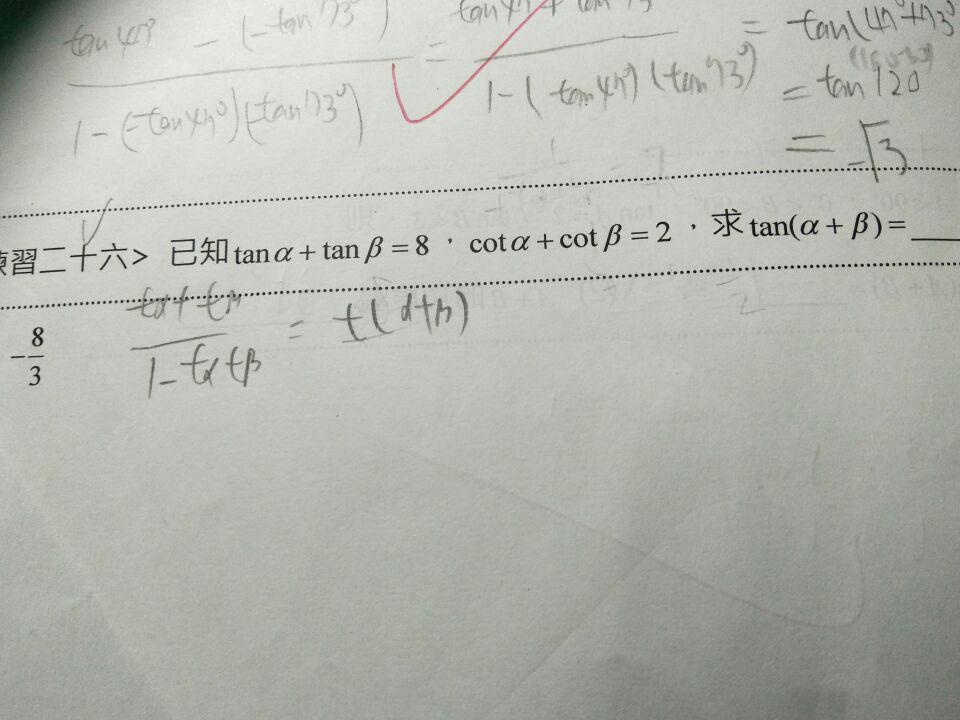 tan 47° - (-tan 73°) = tan 47° + tan 73° = tan(47°+73°
1-(-tan47°)(-tan73°) 1-(tan47°)(tan73°) = tan 120
= -√3
練習二十六> 已知 tan α + tan β = 8，cot α + cot β = 2，求 tan(α + β) = ____
-8/3
tα+tβ / 1-tαtβ = t(α+β)